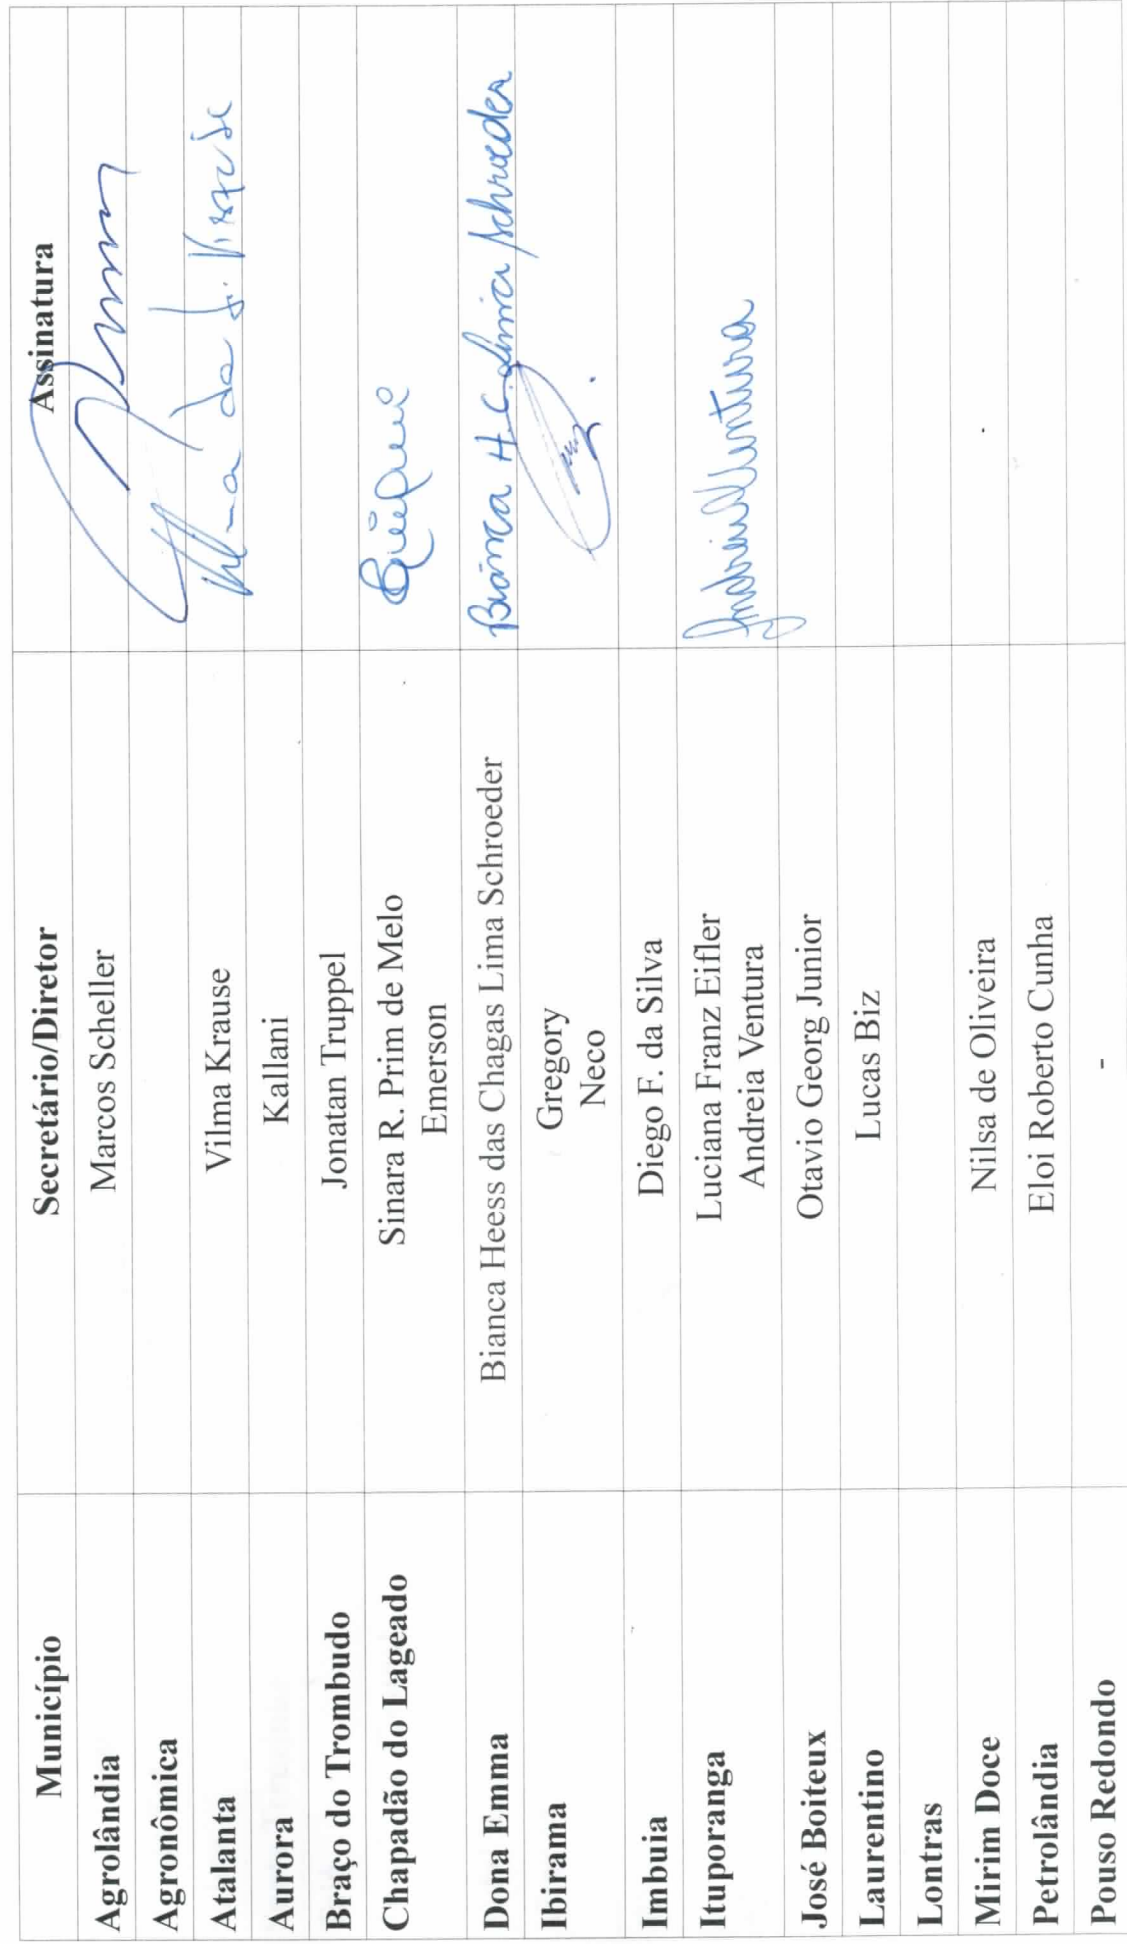 Município Secretário/Diretor Assinatura
Agrolândia Marcos Scheller
Agronômica
Atalanta Vilma Krause
Aurora Kallani
Braço do Trombudo Jonatan Truppel
Chapadão do Lageado Sinara R. Prim de Melo
Emerson
Dona Emma Bianca Heess das Chagas Lima Schroeder Bianca H.C. Lima Schroeder
Ibirama Gregory
Neco
Imbuia Diego F. da Silva
Ituporanga Luciana Franz Eifler
Andreia Ventura Andreia Ventura
José Boiteux Otavio Georg Junior
Laurentino Lucas Biz
Lontras
Mirim Doce Nilsa de Oliveira
Petrolândia Eloi Roberto Cunha
Pouso Redondo -